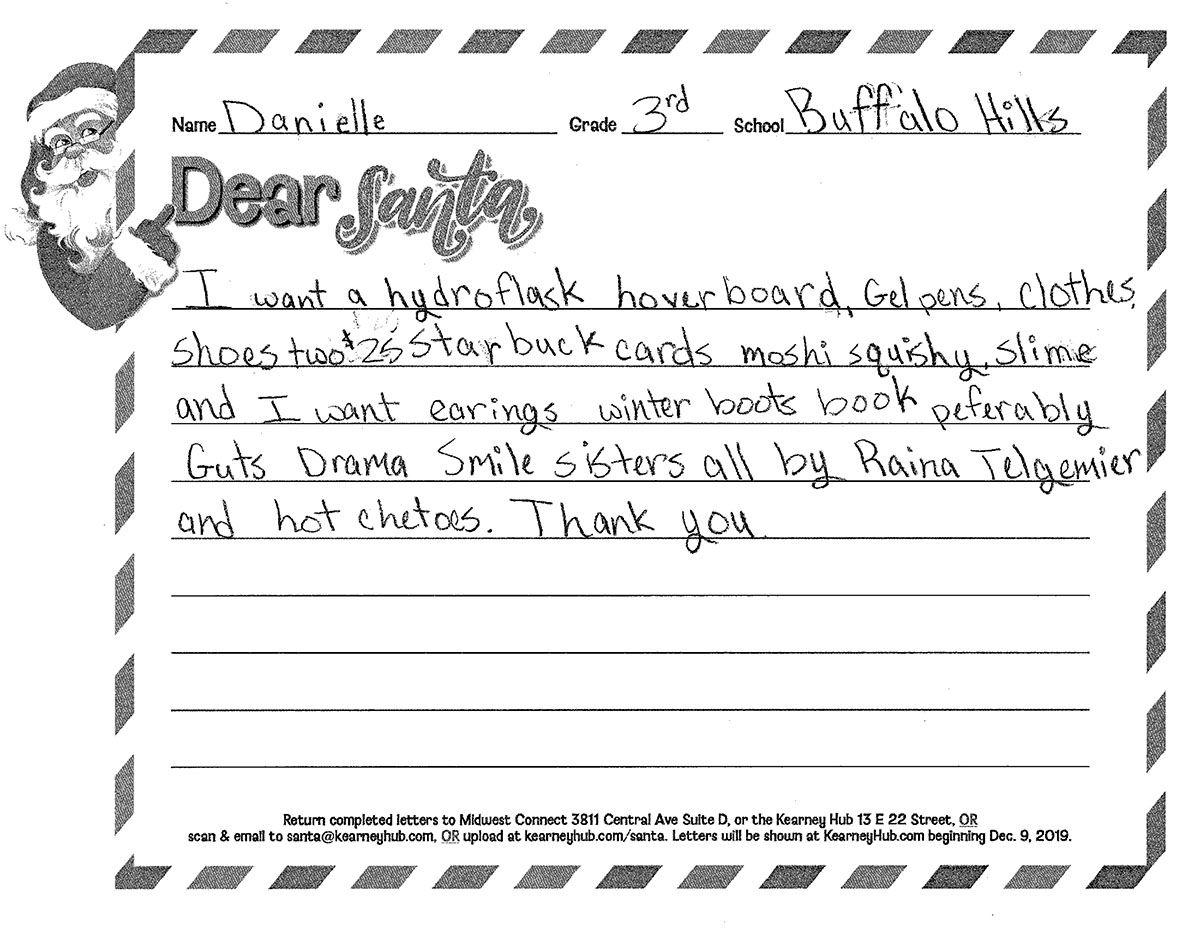 Name Danielle Grade 3rd School Buffalo Hills
Dear Santa
I want a hydroflask hoverboard, Gel pens, clothes,
shoes two $25 starbuck cards moshi squishy, slime
and I want earings winter boots book peferably
Guts Drama Smile sisters all by Raina Telgemier
and hot chetoes. Thank you.
Return completed letters to Midwest Connect 3811 Central Ave Suite D, or the Kearney Hub 13 E 22 Street, OR
scan & email to santa@kearneyhub.com, OR upload at kearneyhub.com/santa. Letters will be shown at KearneyHub.com beginning Dec. 9, 2019.